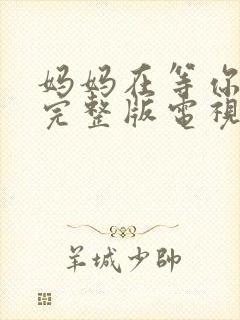 妈妈在等你
完整版電視
羊城少帥